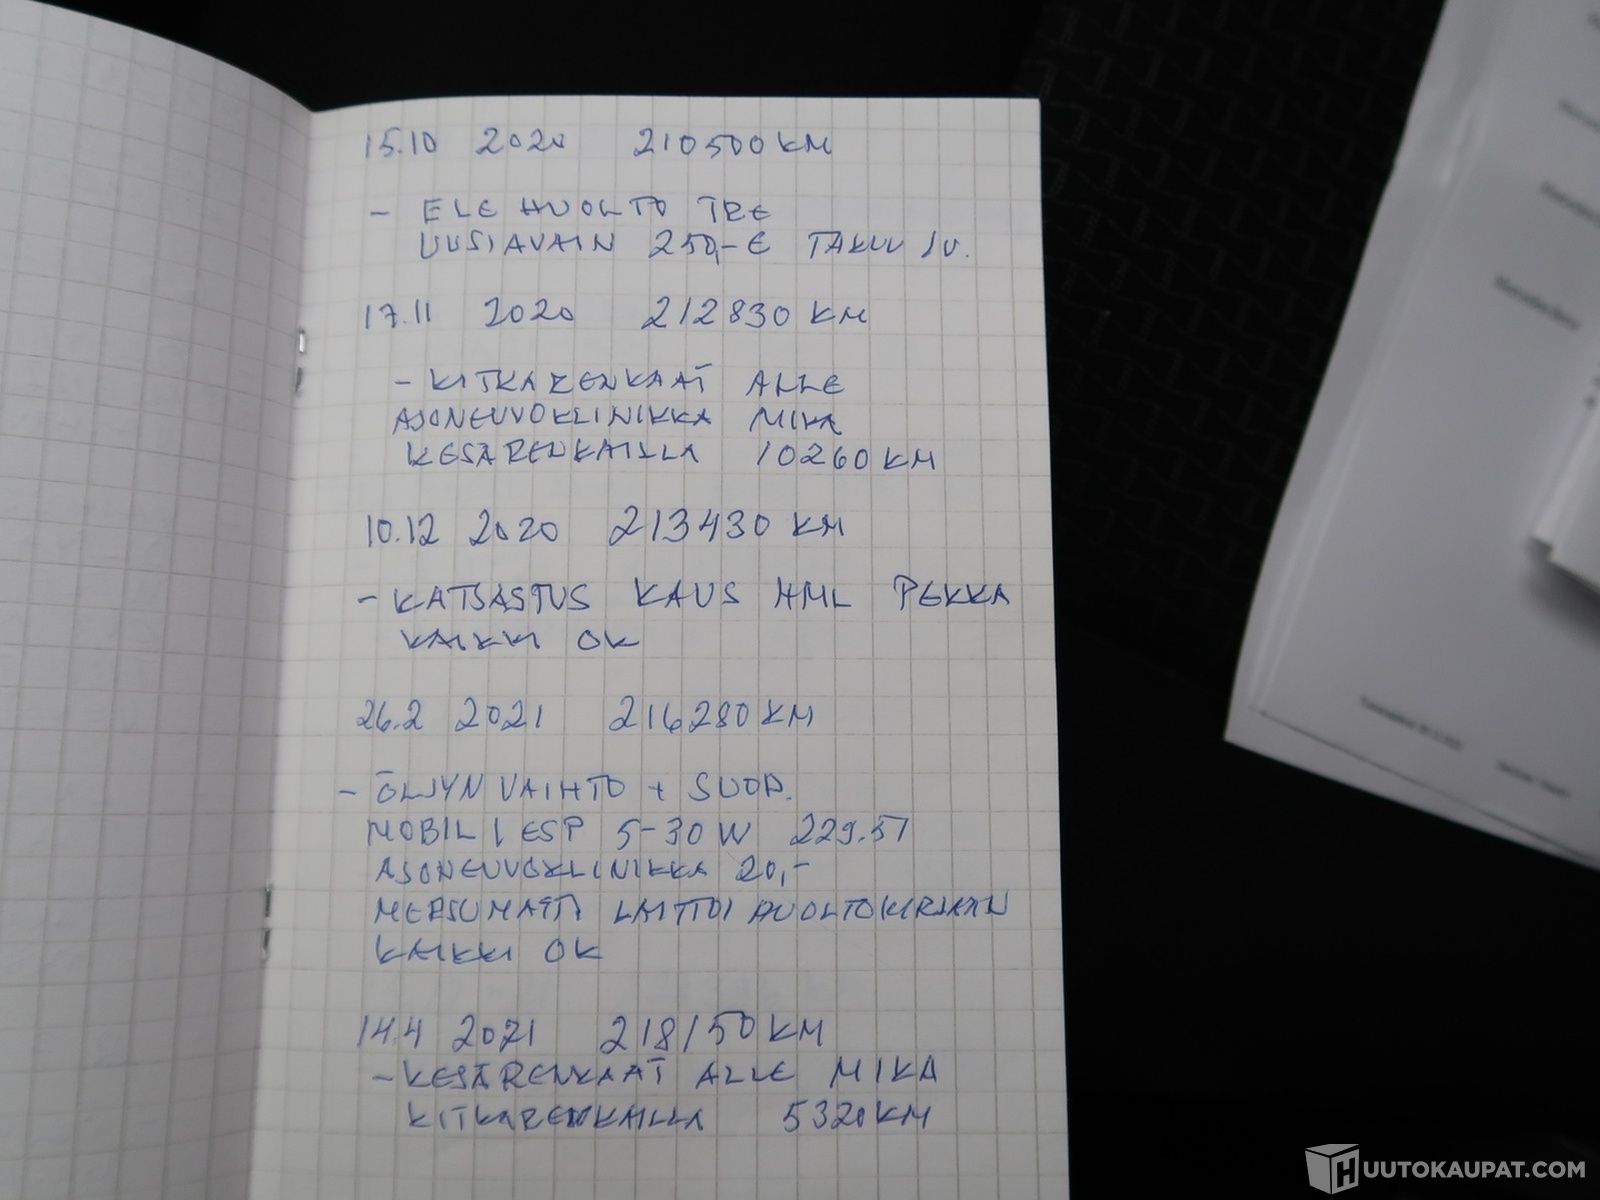 15.10 2020 210500 KM
- ELE HUOLTO TRE
UUSI AVAIN 250,-€ TAKUU 1V.
17.11 2020 212830 KM
- KITKARENKAAT ALLE
AJONEUVOKLINIKKA MIKA
KESÄRENKAILLA 10260 KM
10.12 2020 213430 KM
- KATSASTUS KAUS HML PEKKA
KAIKKI OK
26.2 2021 216280 KM
- ÖLJYN VAIHTO + SUOD.
MOBIL 1 ESP 5-30 W 229.51
AJONEUVOKLINIKKA 20,-
MERSUMATTI LAITTOI HUOLTOKIRJAAN
KAIKKI OK
14.4 2021 218150 KM
- KESÄRENKAAT ALLE MIKA
KITKARENKAILLA 5320 KM
HUUTOKAUPAT.COM